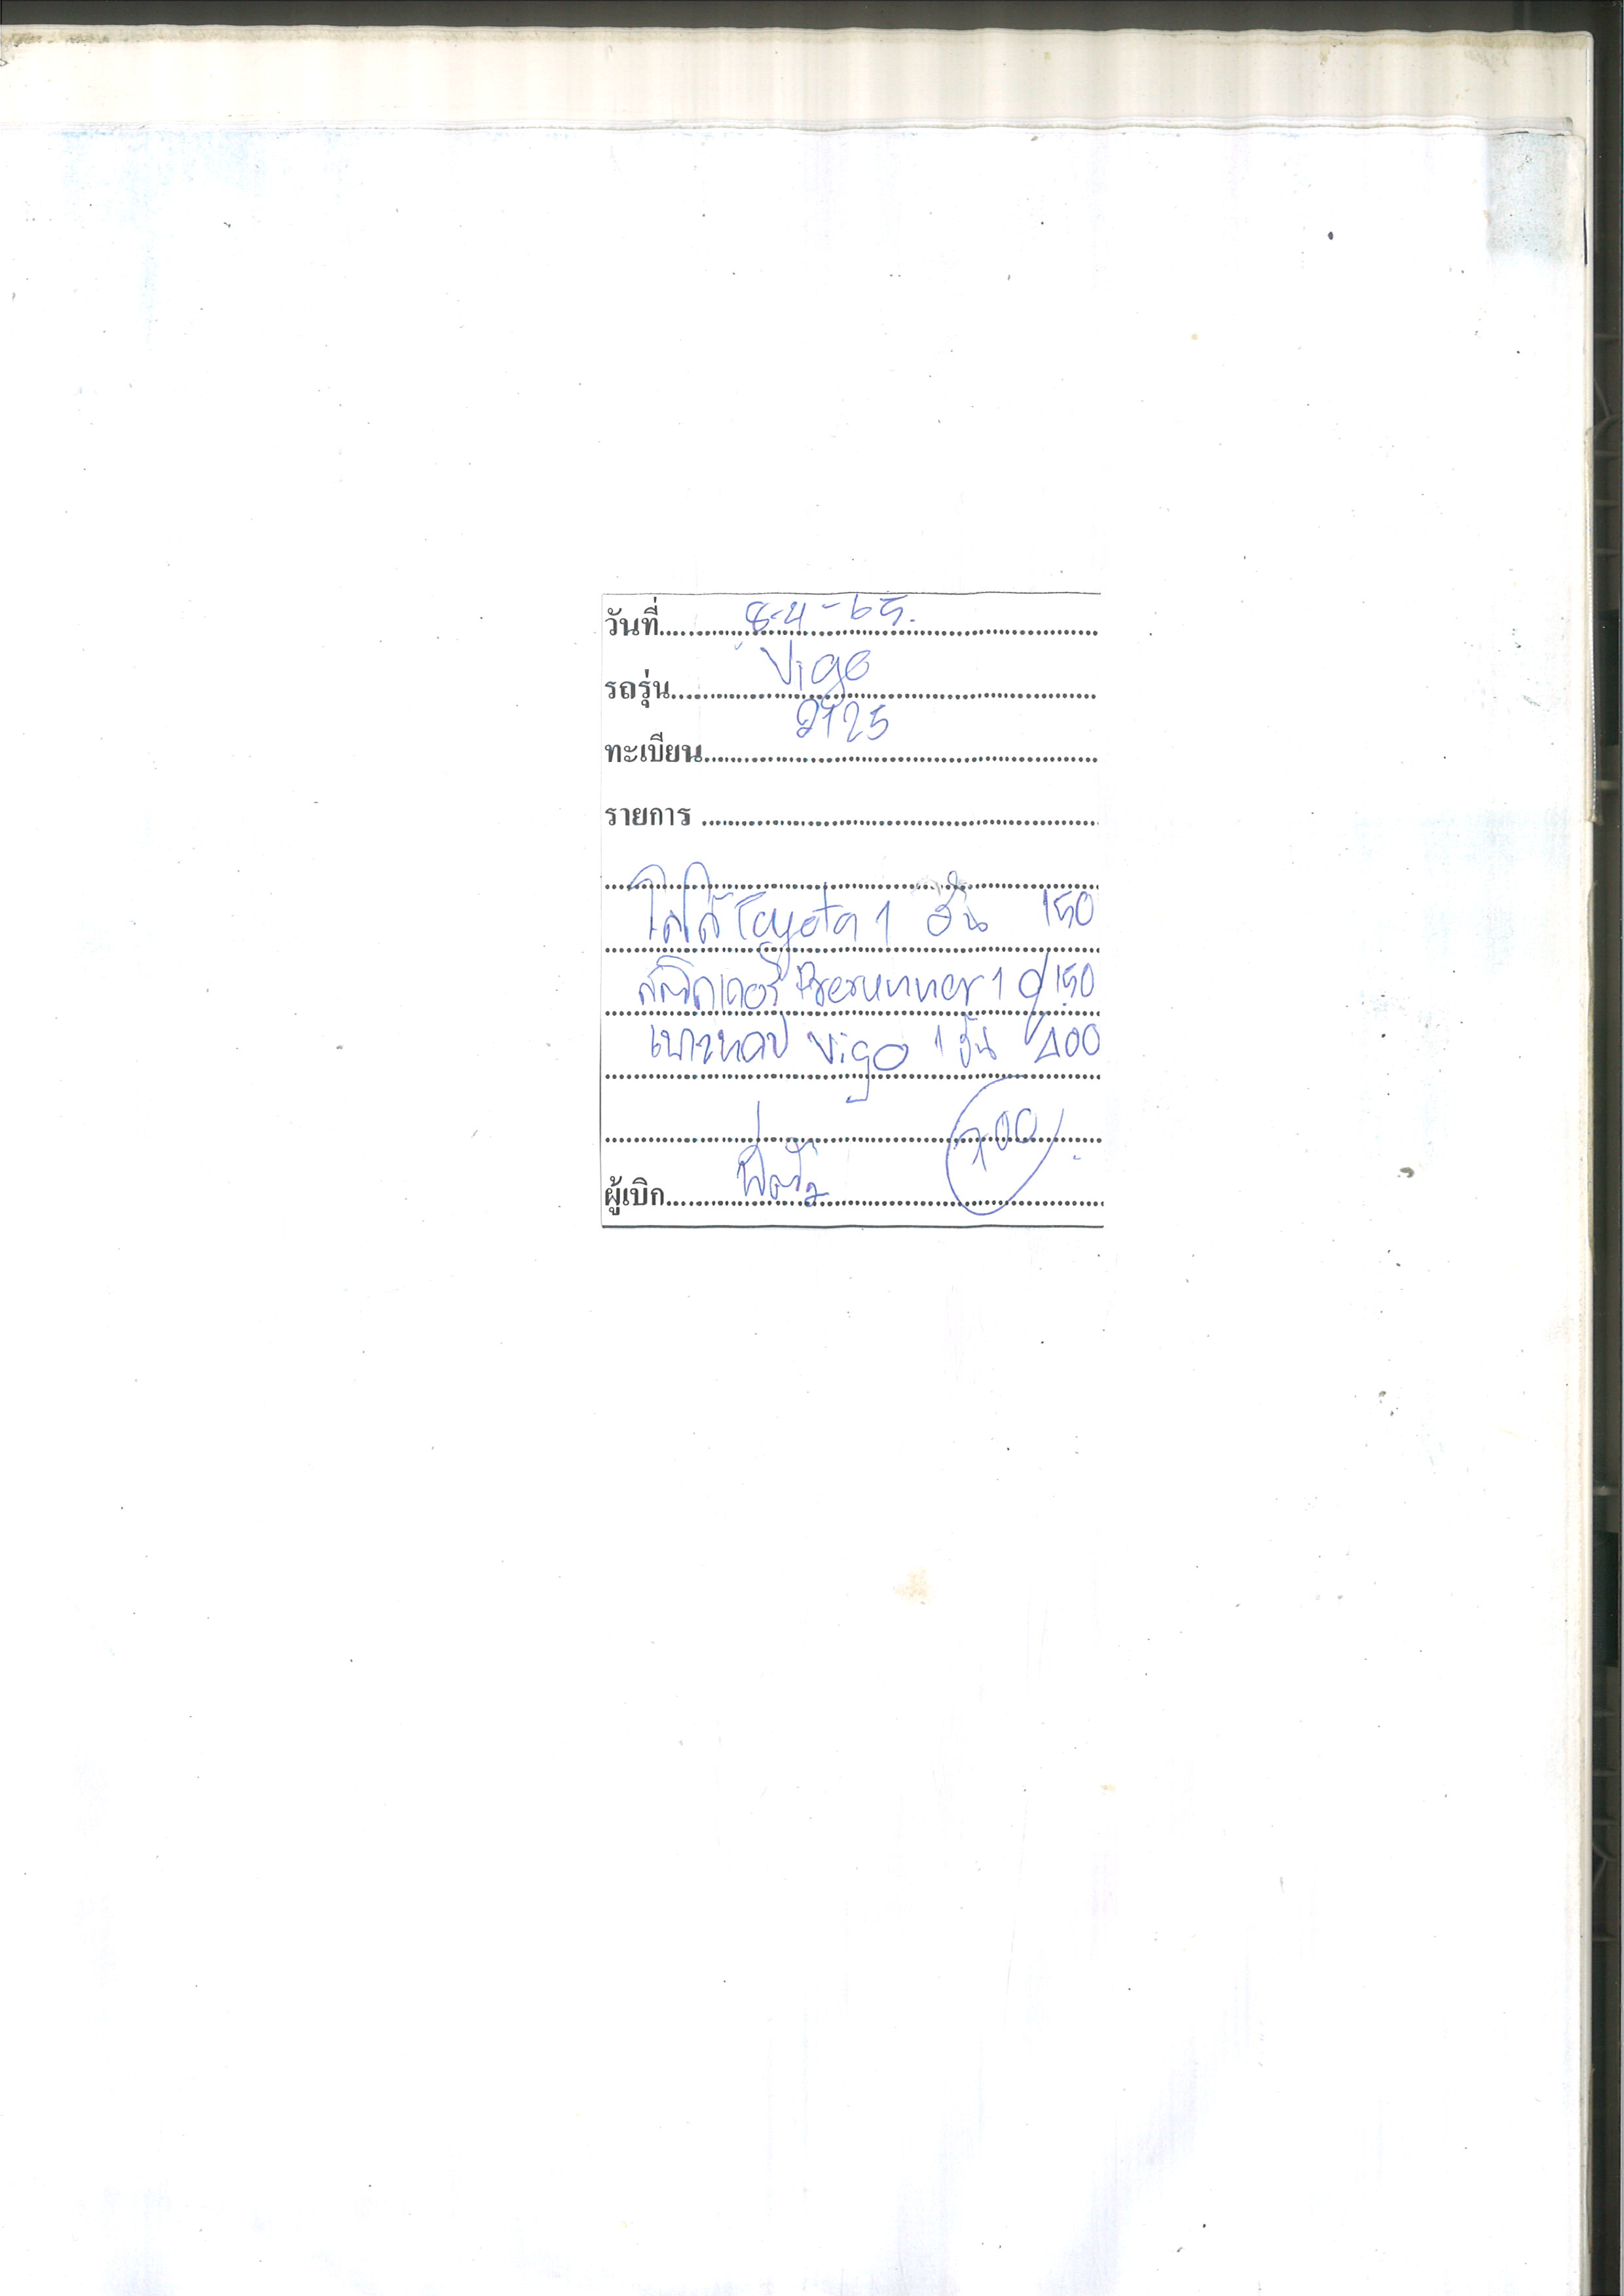 วันที่ 8-4-65.
รถรุ่น Vigo
ทะเบียน 2125
รายการ
โลโก้ Toyota 1 อัน 150
สติกเกอร์ Prerunner 1 150
Vigo 1 อัน 400
700
ผู้เบิก